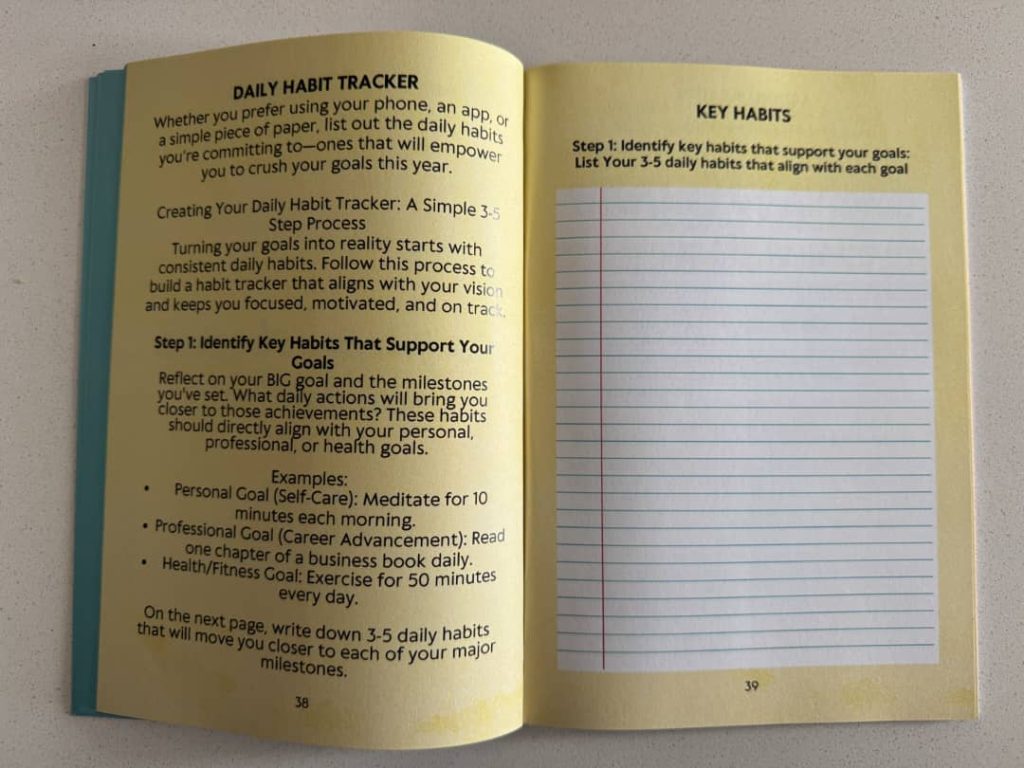 DAILY HABIT TRACKER
Whether you prefer using your phone, an app, or
a simple piece of paper, list out the daily habits
you're committing to—ones that will empower
you to crush your goals this year.
Creating Your Daily Habit Tracker: A Simple 3-5
Step Process
Turning your goals into reality starts with
consistent daily habits. Follow this process to
build a habit tracker that aligns with your vision
and keeps you focused, motivated, and on track.
Step 1: Identify Key Habits That Support Your
Goals
Reflect on your BIG goal and the milestones
you've set. What daily actions will bring you
closer to those achievements? These habits
should directly align with your personal,
professional, or health goals.
Examples:
• Personal Goal (Self-Care): Meditate for 10
minutes each morning.
• Professional Goal (Career Advancement): Read
one chapter of a business book daily.
• Health/Fitness Goal: Exercise for 50 minutes
every day.
On the next page, write down 3-5 daily habits
that will move you closer to each of your major
milestones.
38
KEY HABITS
Step 1: Identify key habits that support your goals:
List Your 3-5 daily habits that align with each goal
39